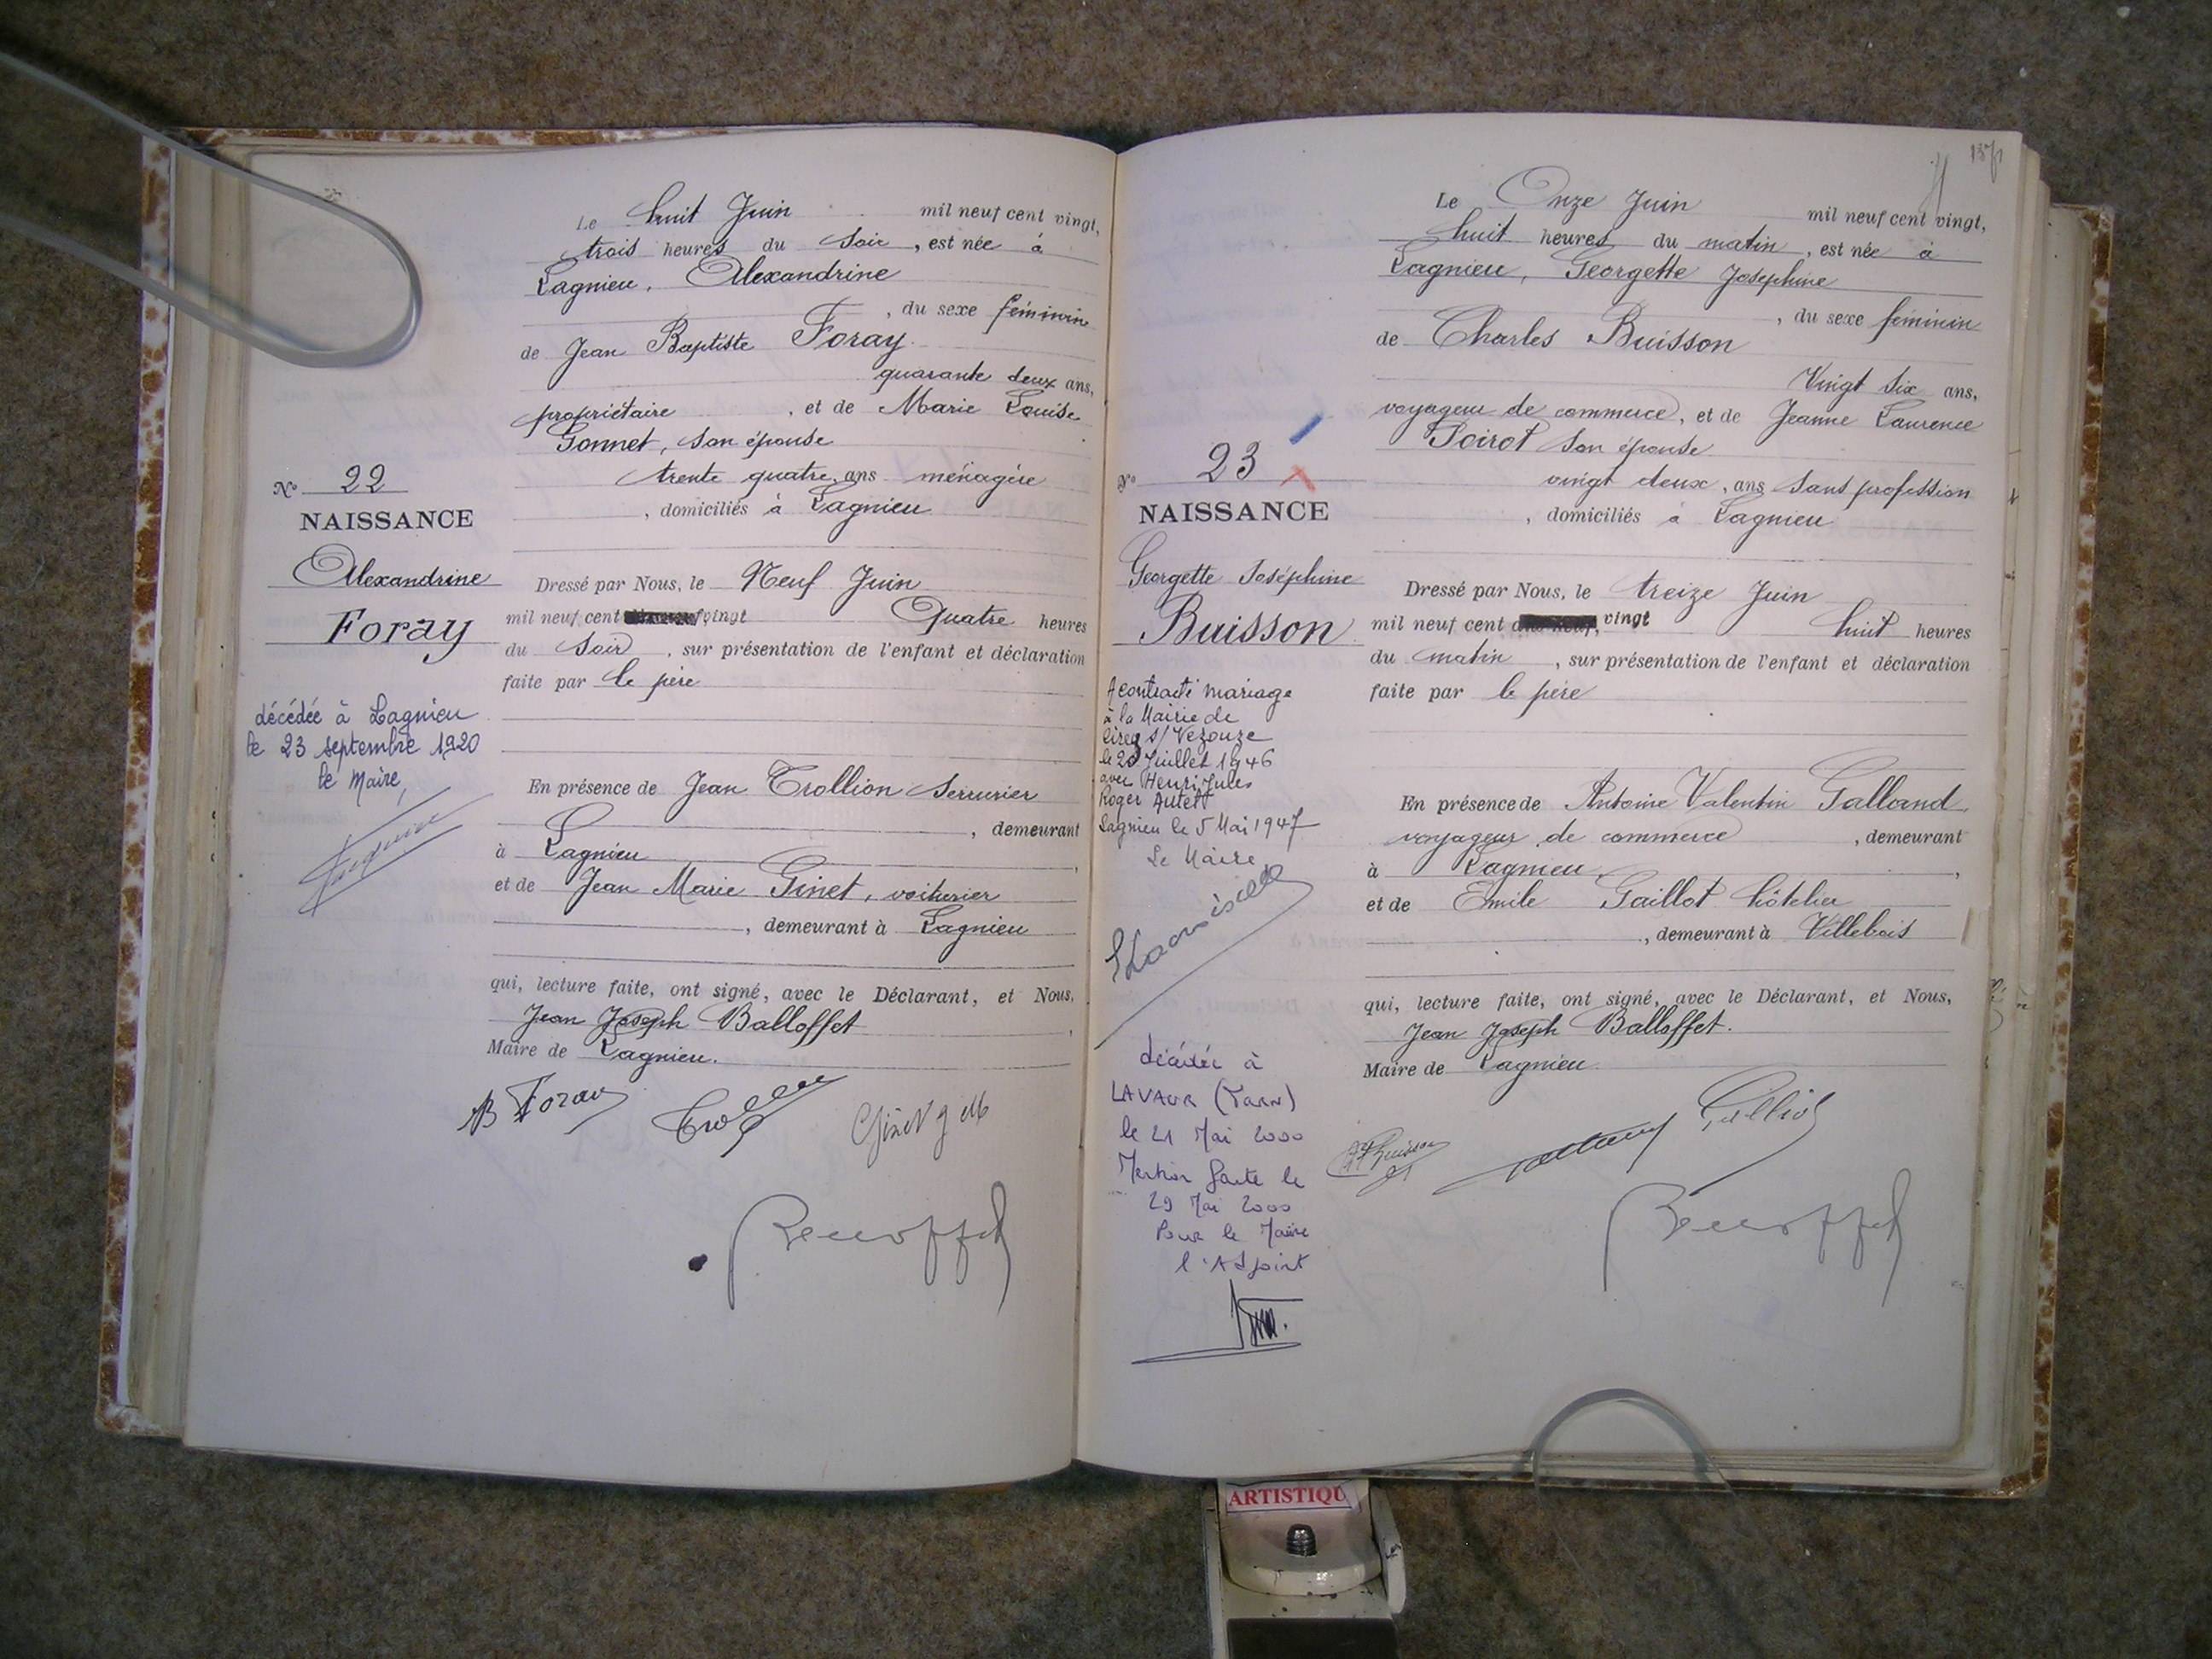 Le huit Juin mil neuf cent vingt,
trois heures du soir, est née à
Lagnieu, Alexandrine
, du sexe féminin
de Jean Baptiste Foray
quarante deux ans,
propriétaire, et de Marie Louise
Gonnet, son épouse
trente quatre, ans ménagère
, domiciliés à Lagnieu
N° 22
NAISSANCE
Alexandrine
Foray
décédée à Lagnieu
le 23 septembre 1920
le Maire,
Dressé par Nous, le Neuf Juin
mil neuf cent vingt Quatre heures
du Soir, sur présentation de l'enfant et déclaration
faite par le père
En présence de Jean Trollion Serrurier
, demeurant
à Lagnieu,
et de Jean Marie Ginet, voiturier
, demeurant à Lagnieu
qui, lecture faite, ont signé, avec le Déclarant, et Nous,
Jean Joseph Balloffet,
Maire de Lagnieu.
B Foray
Ginet J M
Balloffet
137
Le Onze Juin mil neuf cent vingt,
huit heures du matin, est née à
Lagnieu, Georgette Joséphine
, du sexe féminin
de Charles Buisson
Vingt six ans,
voyageur de commerce, et de Jeanne Laurence
Poirot son épouse
vingt deux, ans sans profession
, domiciliés à Lagnieu
N° 23
NAISSANCE
Georgette Joséphine
Buisson
A contracté mariage
à la Mairie de
Cirey s/ Vezouze
le 20 Juillet 1946
avec Henri Jules
Roger Autet
Lagnieu le 5 Mai 1947
Le Maire
décédée à
LAVAUR (Tarn)
le 21 Mai 2000
Mention faite le
29 Mai 2000
Pour le Maire
l'Adjoint
Dressé par Nous, le treize Juin
mil neuf cent vingt huit heures
du matin, sur présentation de l'enfant et déclaration
faite par le père
En présence de Antoine Valentin Galland
voyageur de commerce, demeurant
à Lagnieu,
et de Emile Gaillot hôtelier
, demeurant à Villebois
qui, lecture faite, ont signé, avec le Déclarant, et Nous,
Jean Joseph Balloffet.
Maire de Lagnieu
Buisson
Balloffet
ARTISTIQU